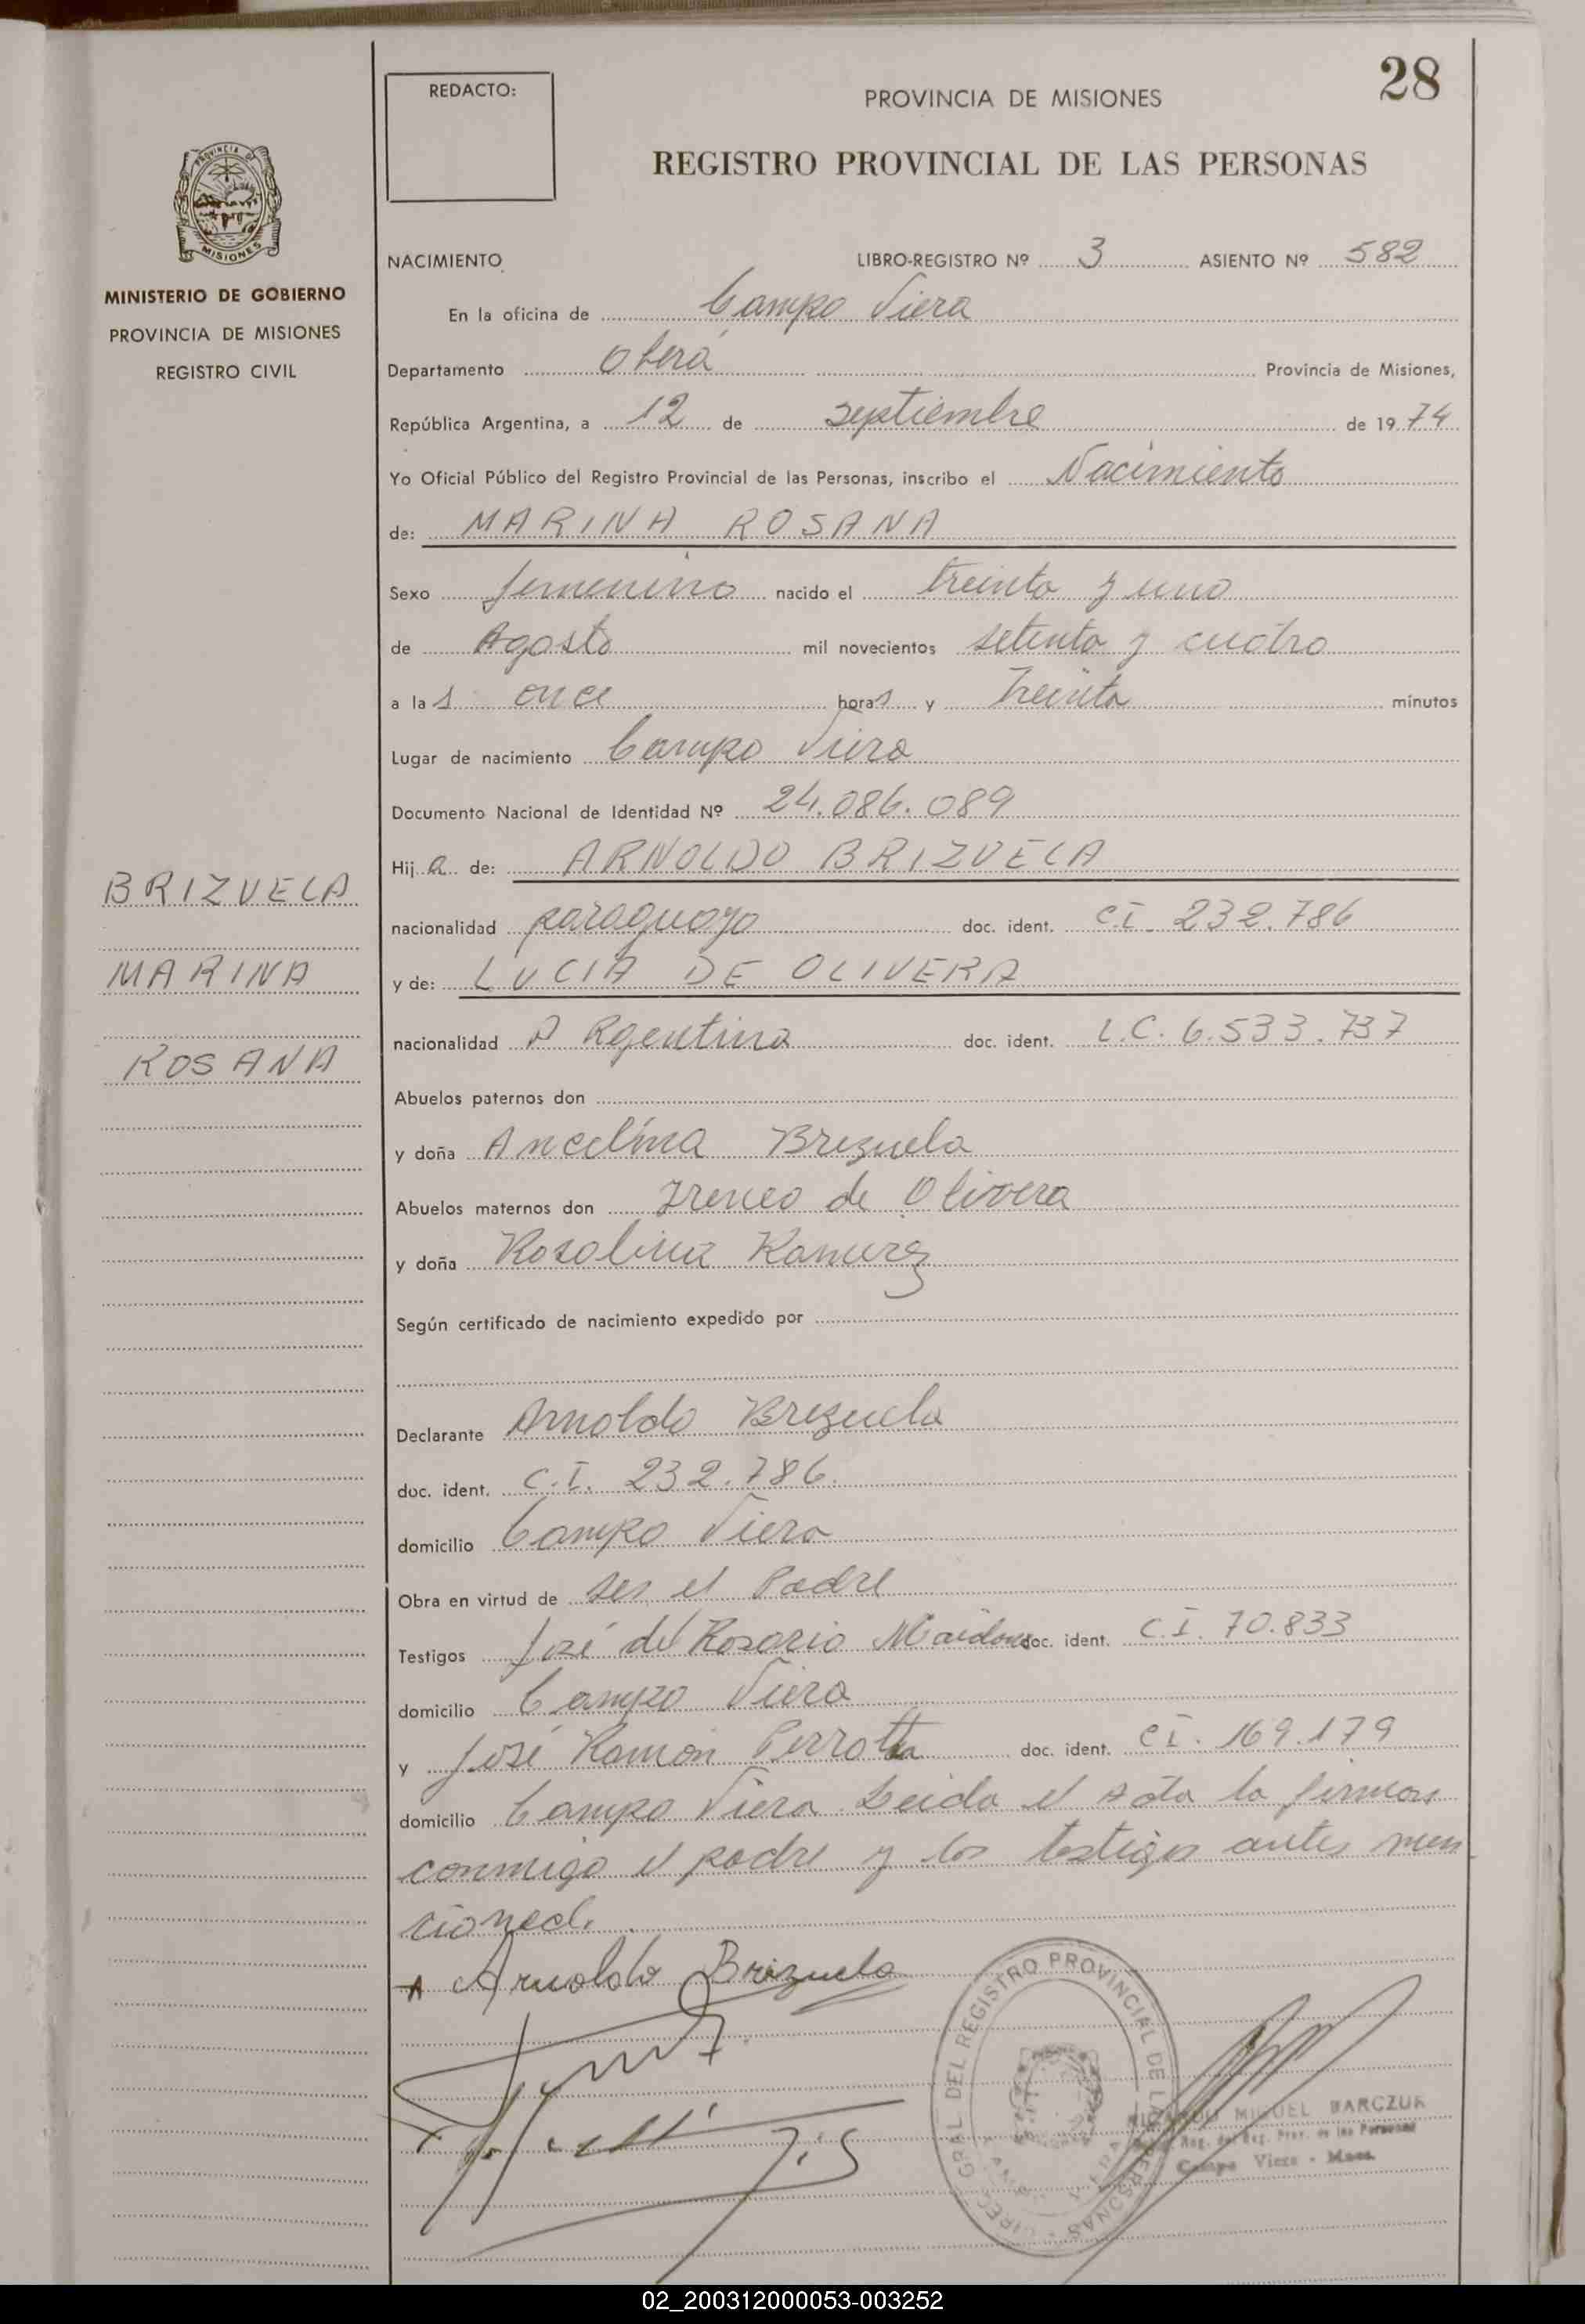 28
REDACTO:
PROVINCIA DE MISIONES
REGISTRO PROVINCIAL DE LAS PERSONAS
PROVINCIA DE
MISIONES
MINISTERIO DE GOBIERNO
PROVINCIA DE MISIONES
REGISTRO CIVIL
NACIMIENTO LIBRO-REGISTRO Nº 3 ASIENTO Nº 582
En la oficina de Campo Viera
Departamento Oberá Provincia de Misiones,
República Argentina, a 12 de septiembre de 1974
Yo Oficial Público del Registro Provincial de las Personas, inscribo el Nacimiento
de: MARINA ROSANA
Sexo femenino nacido el treinta y uno
de Agosto mil novecientos setenta y cuatro
a las once horas y Treinta minutos
Lugar de nacimiento Campo Viera
Documento Nacional de Identidad Nº 24.086.089
Hija de: ARNOLDO BRIZUELA
BRIZUELA
nacionalidad paraguayo doc. ident. C.I. 232.786
MARINA
y de: LUCIA DE OLIVERA
nacionalidad ARgentina doc. ident. L.C. 6.533.737
ROSANA
Abuelos paternos don
y doña Ancelina Brizuela
Abuelos maternos don Ireneo de Olivera
y doña Rosalina Ramirez
Según certificado de nacimiento expedido por
Declarante Arnoldo Brizuela
doc. ident. C.I. 232.786.
domicilio Campo Viera
Obra en virtud de ser el Padre
Testigos José del Rosario doc. ident. C.I. 70.833
domicilio Campo Viera
y José Ramón Perrotta doc. ident. C.I. 169.179
domicilio Campo Viera Leida el acta la firman
conmigo el padre y los testigos antes men
cionad.
Arnoldo Brizuela
DIREC. GRAL DEL REGISTRO PROVINCIAL DE LAS PERSONAS
MIGUEL BARCZUK
Reg. del Reg. Prov. de las Personas
Campo Viera - Mnes.
02_200312000053-003252